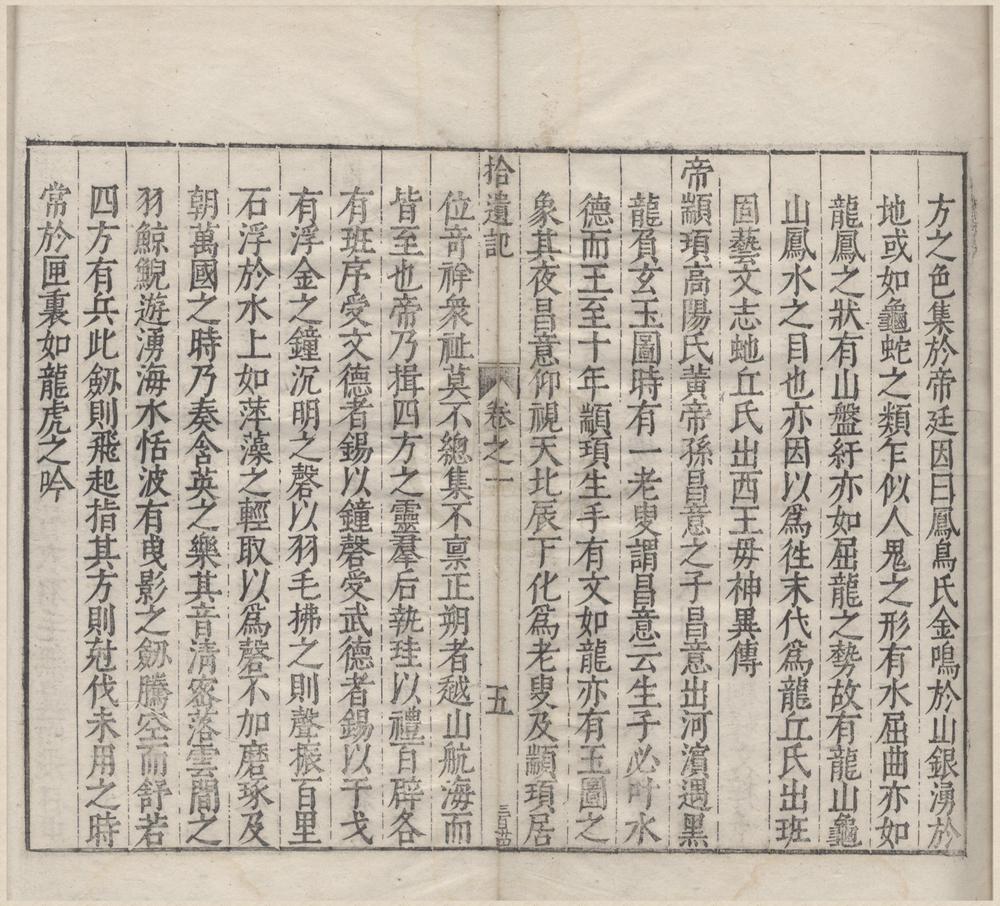 方之色集於帝廷因曰鳳鳥氏金鳴於山銀湧於
地或如龜蛇之類乍似人鬼之形有水屈曲亦如
龍鳳之狀有山盤紆亦如屈龍之勢故有龍山龜
山鳳水之目也亦因以爲徃末代爲龍丘氏出班
固藝文志虵丘氏出西王毋神異傳
帝顓頊高陽氏黃帝孫昌意之子昌意出河濱遇黑
龍負玄玉圖時有一老叟謂昌意云生子必叶水
德而王至十年顓頊生手有文如龍亦有玉圖之
象其夜昌意仰視天北辰下化爲老叟及顓頊居
拾遺記 卷之一 五
位竒祥衆祉莫不總集不禀正朔者越山航海而
皆至也帝乃揖四方之靈羣后執珪以禮百辟各
有班序受文德者錫以鐘磬受武德者錫以干戈
有浮金之鐘沉明之磬以羽毛拂之則聲振百里
石浮於水上如萍藻之輕取以爲磬不加磨琢及
朝萬國之時乃奏含英之樂其音清宻落雲間之
羽鯨鯢遊湧海水恬波有曳影之劒騰空而舒若
四方有兵此劒則飛起指其方則尅伐未用之時
常於匣裏如龍虎之吟